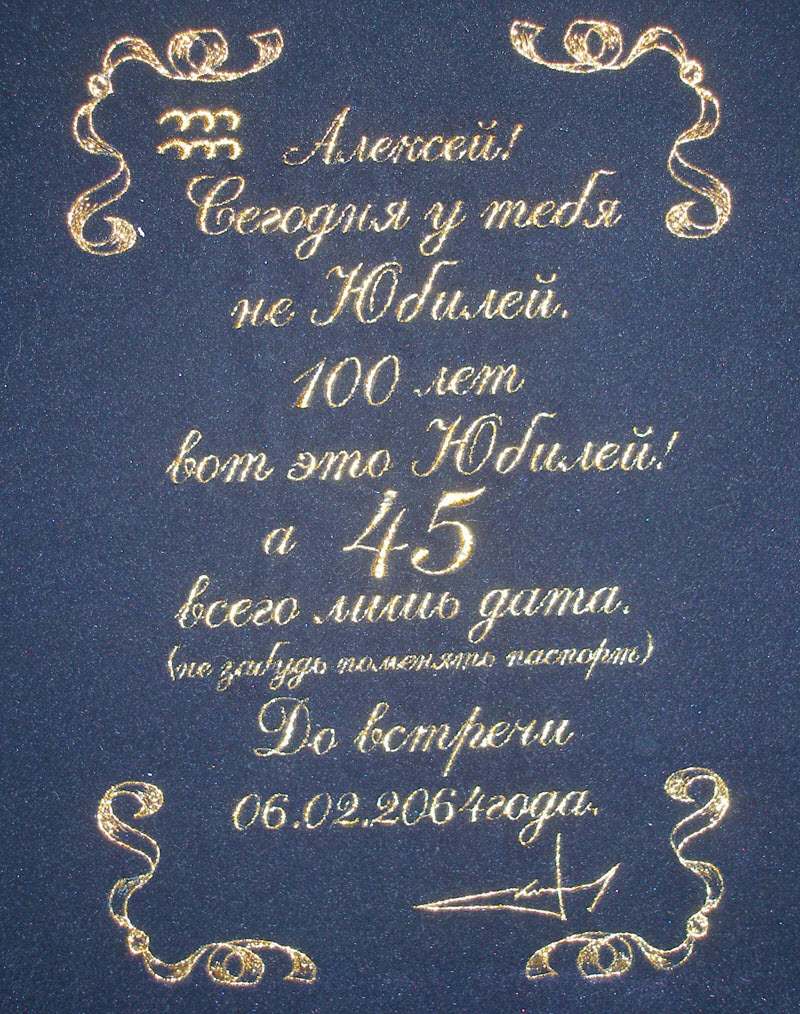 Алексей!
Сегодня у тебя
не Юбилей.
100 лет
вот это Юбилей!
а 45
всего лишь дата.
(не забудь поменять паспорт)
До встречи
06.02.2064года.